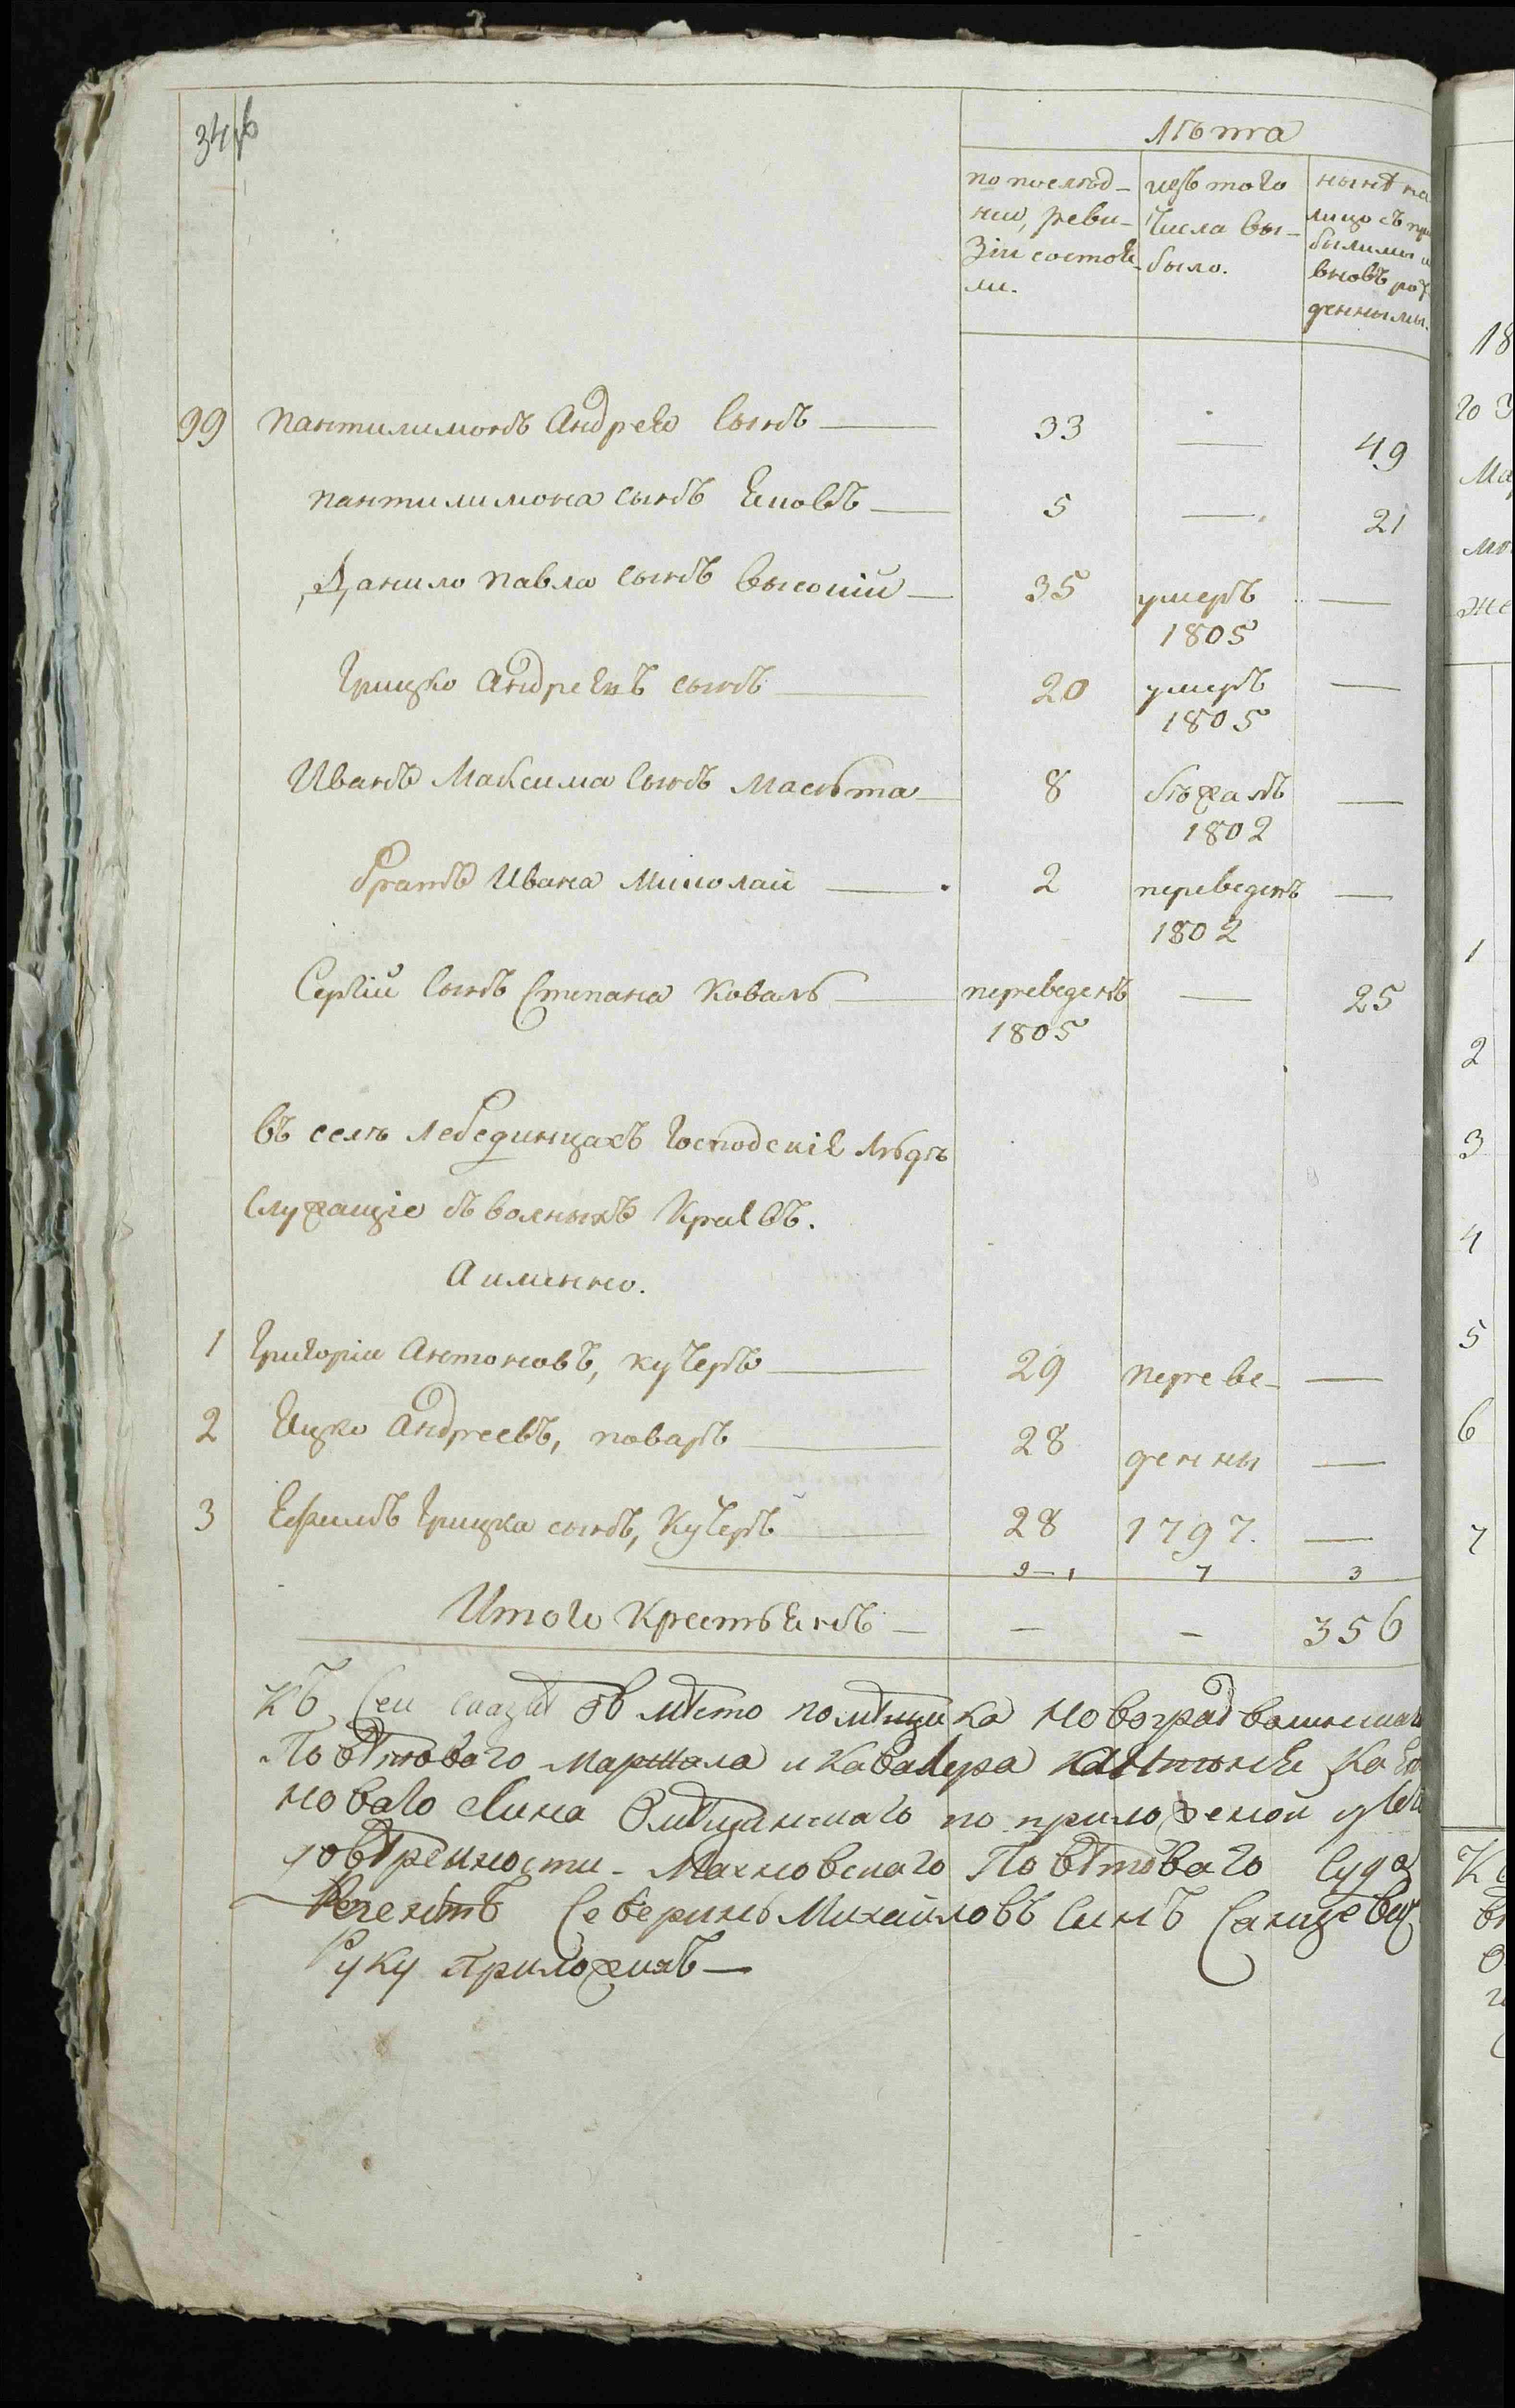 34
Лѣта
по послѣд-
ней, реви-
зіи состоя-
ли.
изъ того
числа вы-
было.
нынѣ на
лицо съ при
былыми и
вновь рож
денными.
99 Пантилимонъ Андрея Сынъ — 33 — 49
Пантилимона сынъ Яковъ — 5 — 21
Данило Павла сынъ высокій — 35 умеръ —
1805
Грицко Андреявъ сынъ — 20 умеръ —
1805
Иванъ Максима Сынъ — 8 бѣжалъ —
1802
братъ Ивана Миколай — 2 переведенъ —
1802
Сергій Сынъ Степана Коваль — переведенъ — 25
1805
въ селѣ Лебединцахъ Господскія Людѣ
Служащіе съ волныхъ Краевъ.
А имянно.
1 Григорій Антоновъ, кучеръ — 29 переве- —
2 Яцко Андреевъ, поваръ — 28 денны —
3 Ефимъ Грицка сынъ, Кучеръ — 28 1797. —
9-1 7 3
Итого Крестьянъ — — — 356
Къ Сей сказкѣ въ мѣсто помѣщика Новоград
Повѣтоваго Маршала и Кавалера
по приложеной
довѣренности Махновскаго Повѣтоваго Суда
Регентъ Северинъ Михайловъ Синъ
Руку Приложилъ —
18
го
Ма
мо
же
1
2
3
4
5
6
7